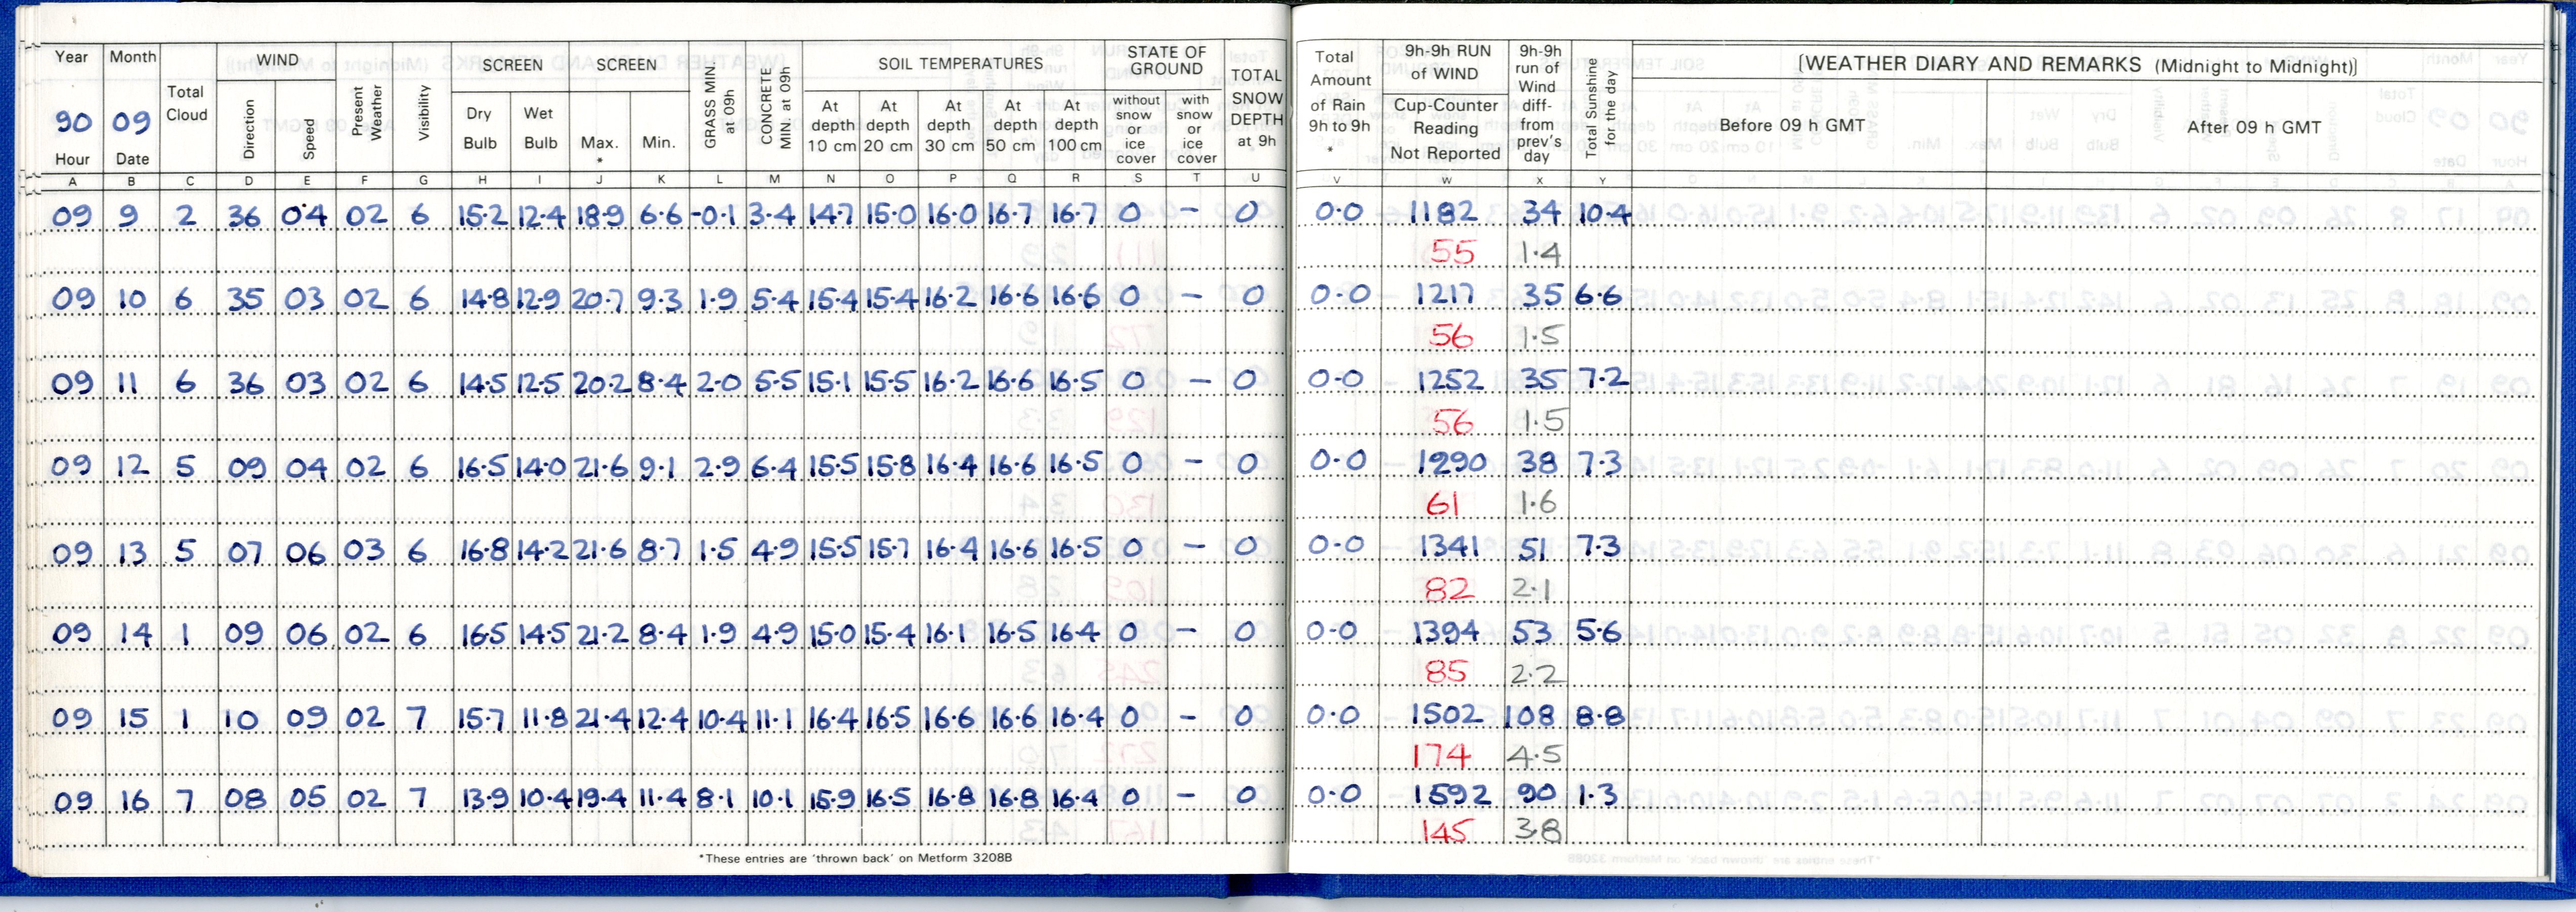 Year Month Total Cloud WIND Present Weather Visibility SCREEN SCREEN GRASS MIN. at 09h CONCRETE MIN. at 09h SOIL TEMPERATURES STATE OF GROUND TOTAL SNOW DEPTH at 9h Total Amount of Rain 9h to 9h * 9h-9h RUN of WIND 9h-9h run of Wind diff- from prev's day Total Sunshine for the day [WEATHER DIARY AND REMARKS (Midnight to Midnight)]
90 09 Direction Speed Dry Bulb Wet Bulb Max. * Min. At depth 10 cm At depth 20 cm At depth 30 cm At depth 50 cm At depth 100 cm without snow or ice cover with snow or ice cover Cup-Counter Reading Not Reported Before 09 h GMT After 09 h GMT
Hour Date
A B C D E F G H I J K L M N O P Q R S T U V W X Y
09 9 2 36 04 02 6 15.2 12.4 18.9 6.6 -0.1 3.4 14.7 15.0 16.0 16.7 16.7 0 - 0 0.0 1182 34 10.4
55 1.4
09 10 6 35 03 02 6 14.8 12.9 20.7 9.3 1.9 5.4 15.4 15.4 16.2 16.6 16.6 0 - 0 0.0 1217 35 6.6
56 1.5
09 11 6 36 03 02 6 14.5 12.5 20.2 8.4 2.0 5.5 15.1 15.5 16.2 16.6 16.5 0 - 0 0.0 1252 35 7.2
56 1.5
09 12 5 09 04 02 6 16.5 14.0 21.6 9.1 2.9 6.4 15.5 15.8 16.4 16.6 16.5 0 - 0 0.0 1290 38 7.3
61 1.6
09 13 5 07 06 03 6 16.8 14.2 21.6 8.7 1.5 4.9 15.5 15.7 16.4 16.6 16.5 0 - 0 0.0 1341 51 7.3
82 2.1
09 14 1 09 06 02 6 16.5 14.5 21.2 8.4 1.9 4.9 15.0 15.4 16.1 16.5 16.4 0 - 0 0.0 1394 53 5.6
85 2.2
09 15 1 10 09 02 7 15.7 11.8 21.4 12.4 10.4 11.1 16.4 16.5 16.6 16.6 16.4 0 - 0 0.0 1502 108 8.8
174 4.5
09 16 7 08 05 02 7 13.9 10.4 19.4 11.4 8.1 10.1 15.9 16.5 16.8 16.8 16.4 0 - 0 0.0 1592 90 1.3
145 3.8
*These entries are 'thrown back' on Metform 3208B